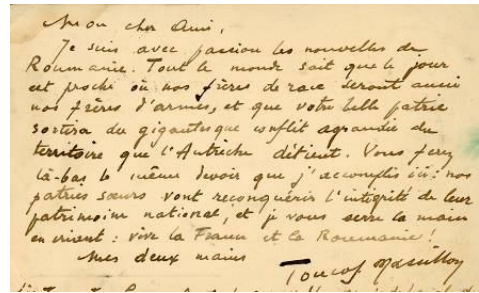 Mon cher Ami,
Je suis avec passion les nouvelles de
Roumanie. Tout le monde sait que le jour
est proche où nos frères de race seront aussi
nos frères d'armes, et que votre belle patrie
sortira du gigantesque conflit agrandie du
territoire que l'Autriche détient. Vous ferez
là-bas le même devoir que j'accomplis ici : nos
patries sœurs vont reconquérir l'intégrité de leur
patrimoine national, et je vous serre la main
en criant : vive la France et la Roumanie !
Mes deux mains
Toucas Massillon